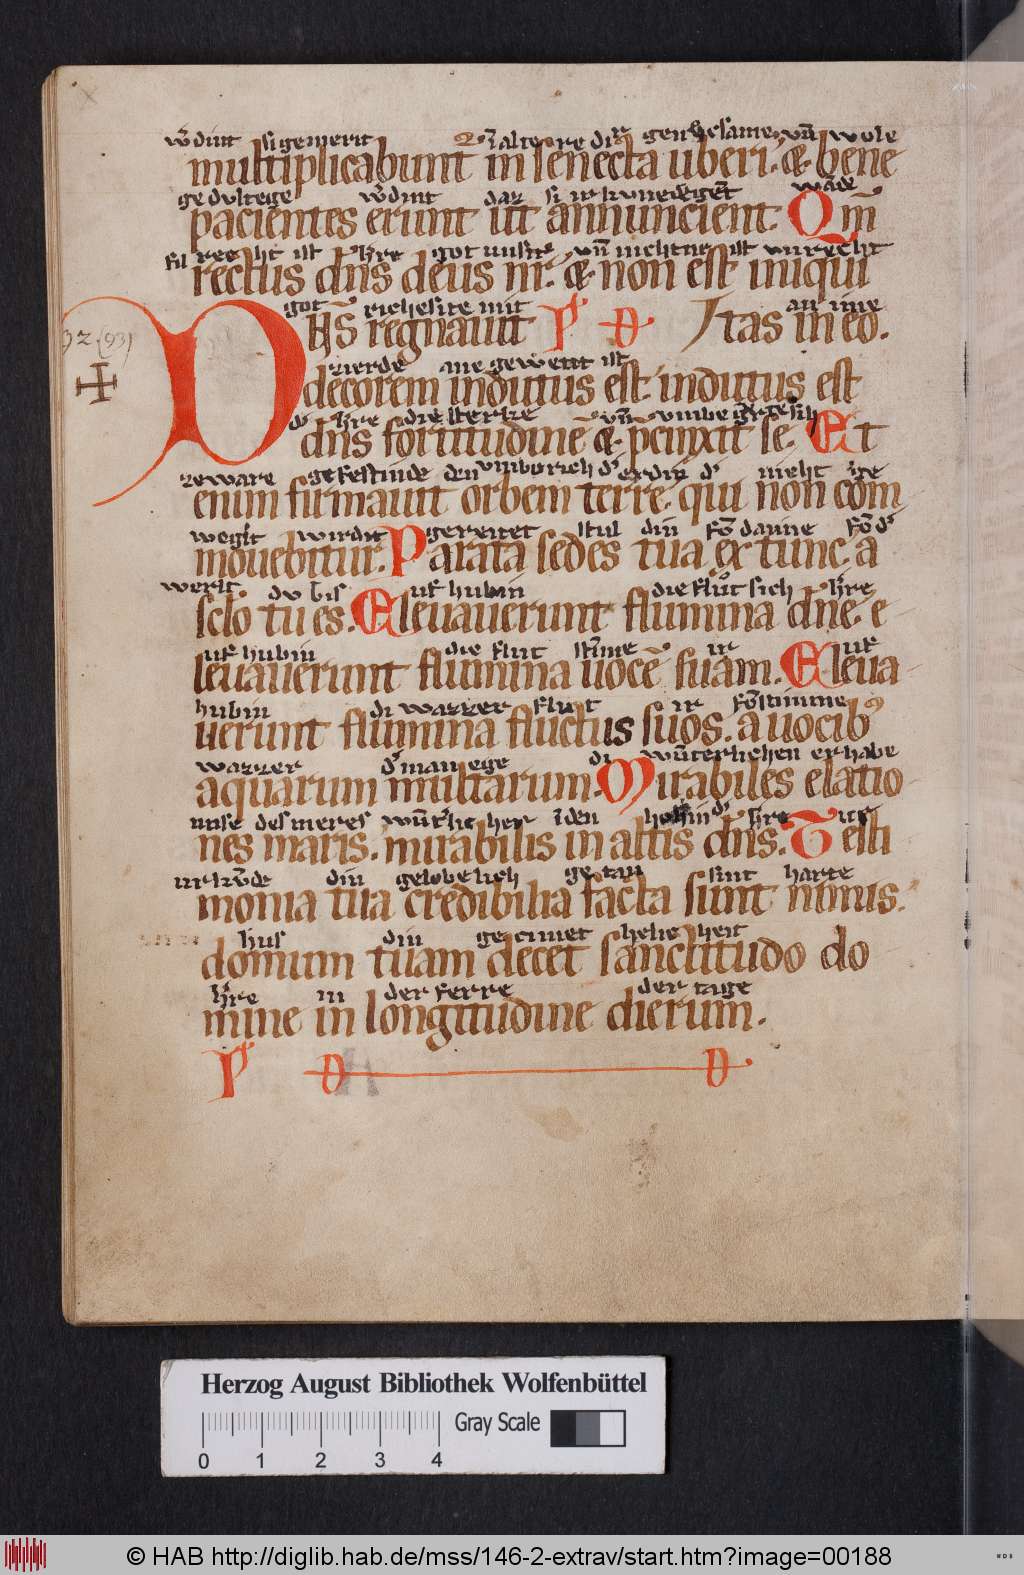 w̄dint si gemerit in alteore dir genvhesame vn̄ wole
multiplicabunt in senecta uberi. & bene
gedvltege w̄dint daz si irkunedegēt wāde
pacientes erunt ut annuncient. Qm̄
recht ist h̄re got unsir vn̄ nicht ist unrecht
rectus dn̄s deus nr̄. & non est iniqui
got richesite mit an ime
Dn̄s regnauit P D Jtas in eo.
92 (93)
zierde ane gewetit ist
decorem indutus est. indutus est
h̄re die sterke vn̄ umbe sih
dn̄s fortitudinē & p̄cinxit se. Et
zeware gefestinde den umborich erdin d' nieht ge
enim firmauit orbem terre. qui non com
wegit wirdit gereitet stul din fō danne fō d'
mouebitur. Parata sedes tua ex tunc. a
werlt dv bis uf hubin die flut sich h̄re
sclo tu es. Eleuauerunt flumina dn̄e. e
uf hubin die flut stīme ir uf
leuauerunt flumina uocē suam. Eleua
hubin di wazzer flut ir fō stimme
uerunt flumina fluctus suos. a uocib9
wazzer d' manege di wūterlichen erhabe
aquarum multarum. Mirabiles elatio
nuse des meres wūt'licher īden h̄re
nes maris. mirabilis in altis dn̄s. Testi
urkūde din gelobelich getan sint harte
monia tua credibilia facta sunt nimis.
hus din gecimet heliecheit
domum tuam decet sanctitudo do
h̄re in der ferre der tage
mine in longitudine dierum.
P D D
Herzog August Bibliothek Wolfenbüttel
Gray Scale
0 1 2 3 4
© HAB http://diglib.hab.de/mss/146-2-extrav/start.htm?image=00188